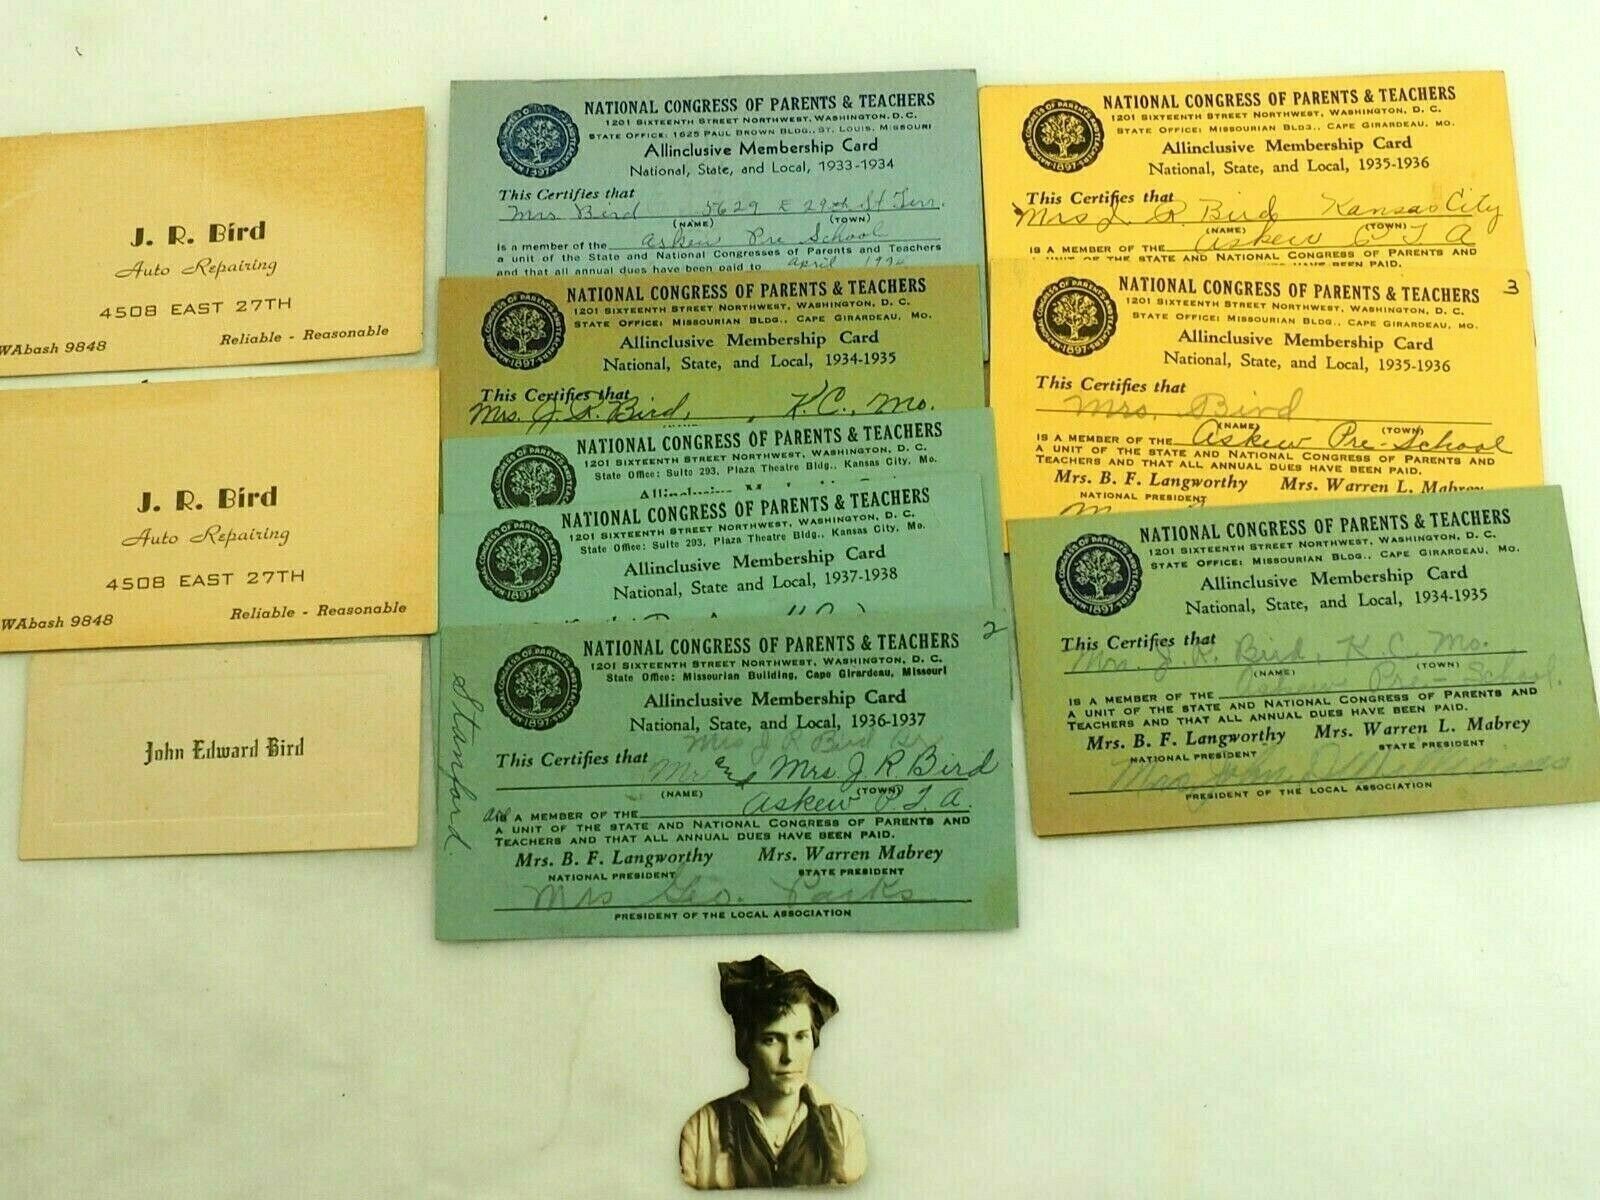 J. R. Bird
Auto Repairing
4508 EAST 27TH
WAbash 9848
Reliable - Reasonable
J. R. Bird
Auto Repairing
4508 EAST 27TH
WAbash 9848
Reliable - Reasonable
John Edward Bird
NATIONAL CONGRESS OF PARENTS & TEACHERS
1201 SIXTEENTH STREET NORTHWEST, WASHINGTON, D.C.
STATE OFFICE: 1625 PAUL BROWN BLDG., ST. LOUIS, MISSOURI
Allinclusive Membership Card
National, State, and Local, 1933-1934
This Certifies that
Mrs Bird 5629 E 29th St Terr.
(NAME) (TOWN)
Is a member of the Askew Pre School
a unit of the State and National Congresses of Parents and Teachers
and that all annual dues have been paid to april
NATIONAL CONGRESS OF PARENTS & TEACHERS
1201 SIXTEENTH STREET NORTHWEST, WASHINGTON, D. C.
STATE OFFICE: MISSOURIAN BLDG., CAPE GIRARDEAU, MO.
Allinclusive Membership Card
National, State, and Local, 1934-1935
This Certifies that
Mrs. J. R. Bird, K. C., Mo.
NATIONAL CONGRESS OF PARENTS & TEACHERS
1201 SIXTEENTH STREET NORTHWEST, WASHINGTON, D. C.
State Office: Suite 293, Plaza Theatre Bldg., Kansas City, Mo.
NATIONAL CONGRESS OF PARENTS & TEACHERS
1201 SIXTEENTH STREET NORTHWEST, WASHINGTON, D. C.
State Office: Suite 293, Plaza Theatre Bldg., Kansas City, Mo.
Allinclusive Membership Card
National, State, and Local, 1937-1938
1897
NATIONAL CONGRESS OF PARENTS & TEACHERS 2
1201 SIXTEENTH STREET NORTHWEST, WASHINGTON, D. C.
State Office: Missourian Building, Cape Girardeau, Missouri
Allinclusive Membership Card
National, State, and Local, 1936-1937
1897
Mrs J R Bird
This Certifies that Mr and Mrs. J. R. Bird
(NAME) (TOWN)
are A MEMBER OF THE Askew P. T. A.
A UNIT OF THE STATE AND NATIONAL CONGRESS OF PARENTS AND
TEACHERS AND THAT ALL ANNUAL DUES HAVE BEEN PAID.
Mrs. B. F. Langworthy Mrs. Warren Mabrey
NATIONAL PRESIDENT STATE PRESIDENT
Mrs Geo. Parks
PRESIDENT OF THE LOCAL ASSOCIATION
Stanford
NATIONAL CONGRESS OF PARENTS & TEACHERS
1201 SIXTEENTH STREET NORTHWEST, WASHINGTON, D. C.
STATE OFFICE: MISSOURIAN BLDG., CAPE GIRARDEAU, MO.
Allinclusive Membership Card
National, State, and Local, 1935-1936
1897
This Certifies that
Mrs J. R Bird Kansas City
(NAME) (TOWN)
IS A MEMBER OF THE Askew P T A
A UNIT OF THE STATE AND NATIONAL CONGRESS OF PARENTS AND
NATIONAL CONGRESS OF PARENTS & TEACHERS 3
1201 SIXTEENTH STREET NORTHWEST, WASHINGTON, D. C.
STATE OFFICE: MISSOURIAN BLDG., CAPE GIRARDEAU, MO.
Allinclusive Membership Card
National, State, and Local, 1935-1936
1897
This Certifies that
Mrs. Bird
(NAME) (TOWN)
IS A MEMBER OF THE Askew Pre-School
A UNIT OF THE STATE AND NATIONAL CONGRESS OF PARENTS AND
TEACHERS AND THAT ALL ANNUAL DUES HAVE BEEN PAID.
Mrs. B. F. Langworthy Mrs. Warren L. Mabrey
NATIONAL PRESIDENT
NATIONAL CONGRESS OF PARENTS & TEACHERS
1201 SIXTEENTH STREET NORTHWEST, WASHINGTON, D. C.
STATE OFFICE: MISSOURIAN BLDG., CAPE GIRARDEAU, MO.
Allinclusive Membership Card
National, State, and Local, 1934-1935
1897
This Certifies that
Mrs. J. R. Bird, K. C. Mo.
(NAME) (TOWN)
IS A MEMBER OF THE Askew Pre-School.
A UNIT OF THE STATE AND NATIONAL CONGRESS OF PARENTS AND
TEACHERS AND THAT ALL ANNUAL DUES HAVE BEEN PAID.
Mrs. B. F. Langworthy Mrs. Warren L. Mabrey
NATIONAL PRESIDENT STATE PRESIDENT
Mrs John
PRESIDENT OF THE LOCAL ASSOCIATION